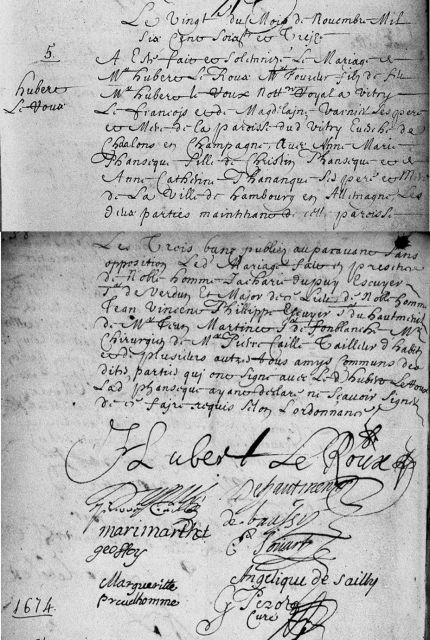 Le Vingt du Mois de Novembre Mil
Six Cent Soixte et Treize
5.
hubert
Le Roux
A Este fait et solemnizé Le Mariage de
Mre hubert Le Roux Mre foureur filz de feu
Mre hubert Le Roux Nottre Royal a Vitry
Le françois et de Magdelaine Varnier Ses pere
et Mere de La paroisse dud Vitry Evesché de
Chaalons en Champagne, Avec Anne Marie
Phanseque fille de Phanseque et de
Anne Catherine Phananque Ses pere et Mere
de La Ville de hambourg en Allemagne, Les
deux parties maintenant de cette paroisse
Les Trois bans publiez auparavant sans
opposition Led Mariage fait en presence
de Noble homme Zacharie dupuy Escuyer
Sr de Verdun et Major de ce Lieu de Noble homme
Jean Vincent Philippe Escuyer Sr du hautmenil
de Mre Jean Martinet Sr de fonblanche Mre
Chirurgien de Mre Pierre Caille Tailleur d'habits
et de plusieurs autres tous amys communs des
dits parties qui ont Signé avec Led hubert Le Roux
Lad phanseque ayant declaré ne Sçavoir Signer
de ce faire requis Selon L'ordonnance
Hubert Le Roux
Dehautmenil
marimarthet
geoffoy
Marguerite
Preudhomme
Angelique de Sailly
G Perot
Curé
1674.